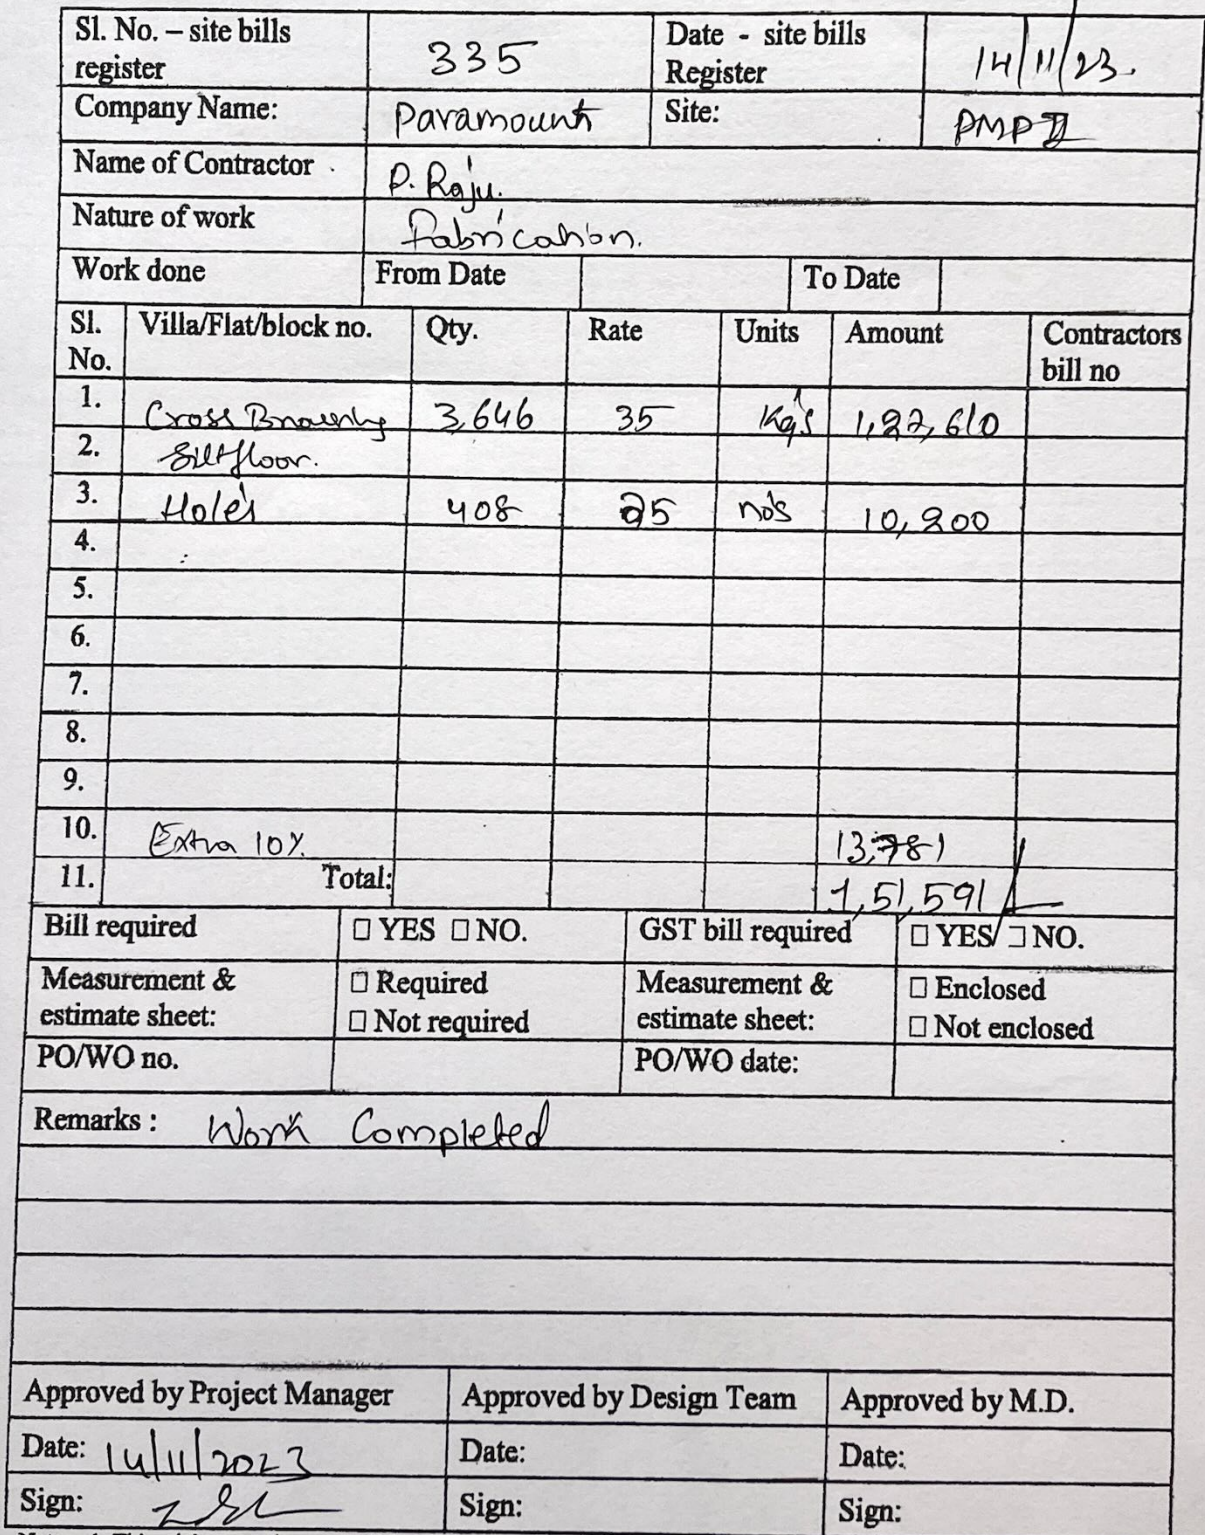 Sl. No. – site bills register 335 Date - site bills Register 14/11/23.
Company Name: Paramount Site: PMP II
Name of Contractor P. Raju.
Nature of work Fabrication.
Work done From Date To Date
Sl. No. Villa/Flat/block no. Qty. Rate Units Amount Contractors bill no
1. Cross 3,646 35 Kg's 1,27,610
2.
3. Hole's 408 25 no's 10,200
4.
5.
6.
7.
8.
9.
10. Extra 10% 13,781
11. Total: 1,51,591/-
Bill required □ YES □ NO. GST bill required □ YES □ NO.
Measurement & estimate sheet: □ Required □ Not required Measurement & estimate sheet: □ Enclosed □ Not enclosed
PO/WO no. PO/WO date:
Remarks : Work Completed
Approved by Project Manager Approved by Design Team Approved by M.D.
Date: 14/11/2023 Date: Date:
Sign: Sign: Sign: